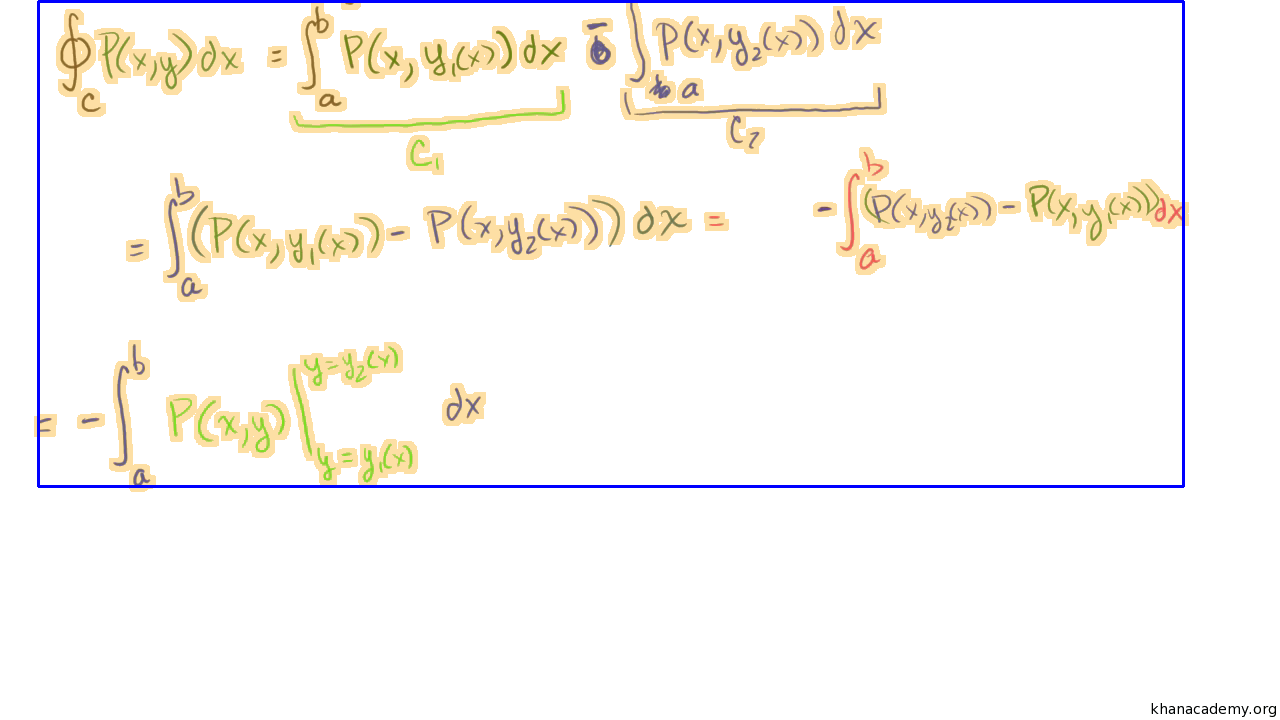 ∮_C P(x,y) dx = ∫_a^b P(x, y₁(x)) dx − ∫_a P(x, y₂(x)) dx
C₁ C₂
= ∫_a^b (P(x, y₁(x)) − P(x, y₂(x))) dx = − ∫_a^b (P(x, y₂(x)) − P(x, y₁(x))) dx
= − ∫_a^b P(x,y) |_{y = y₁(x)}^{y = y₂(x)} dx
khanacademy.org